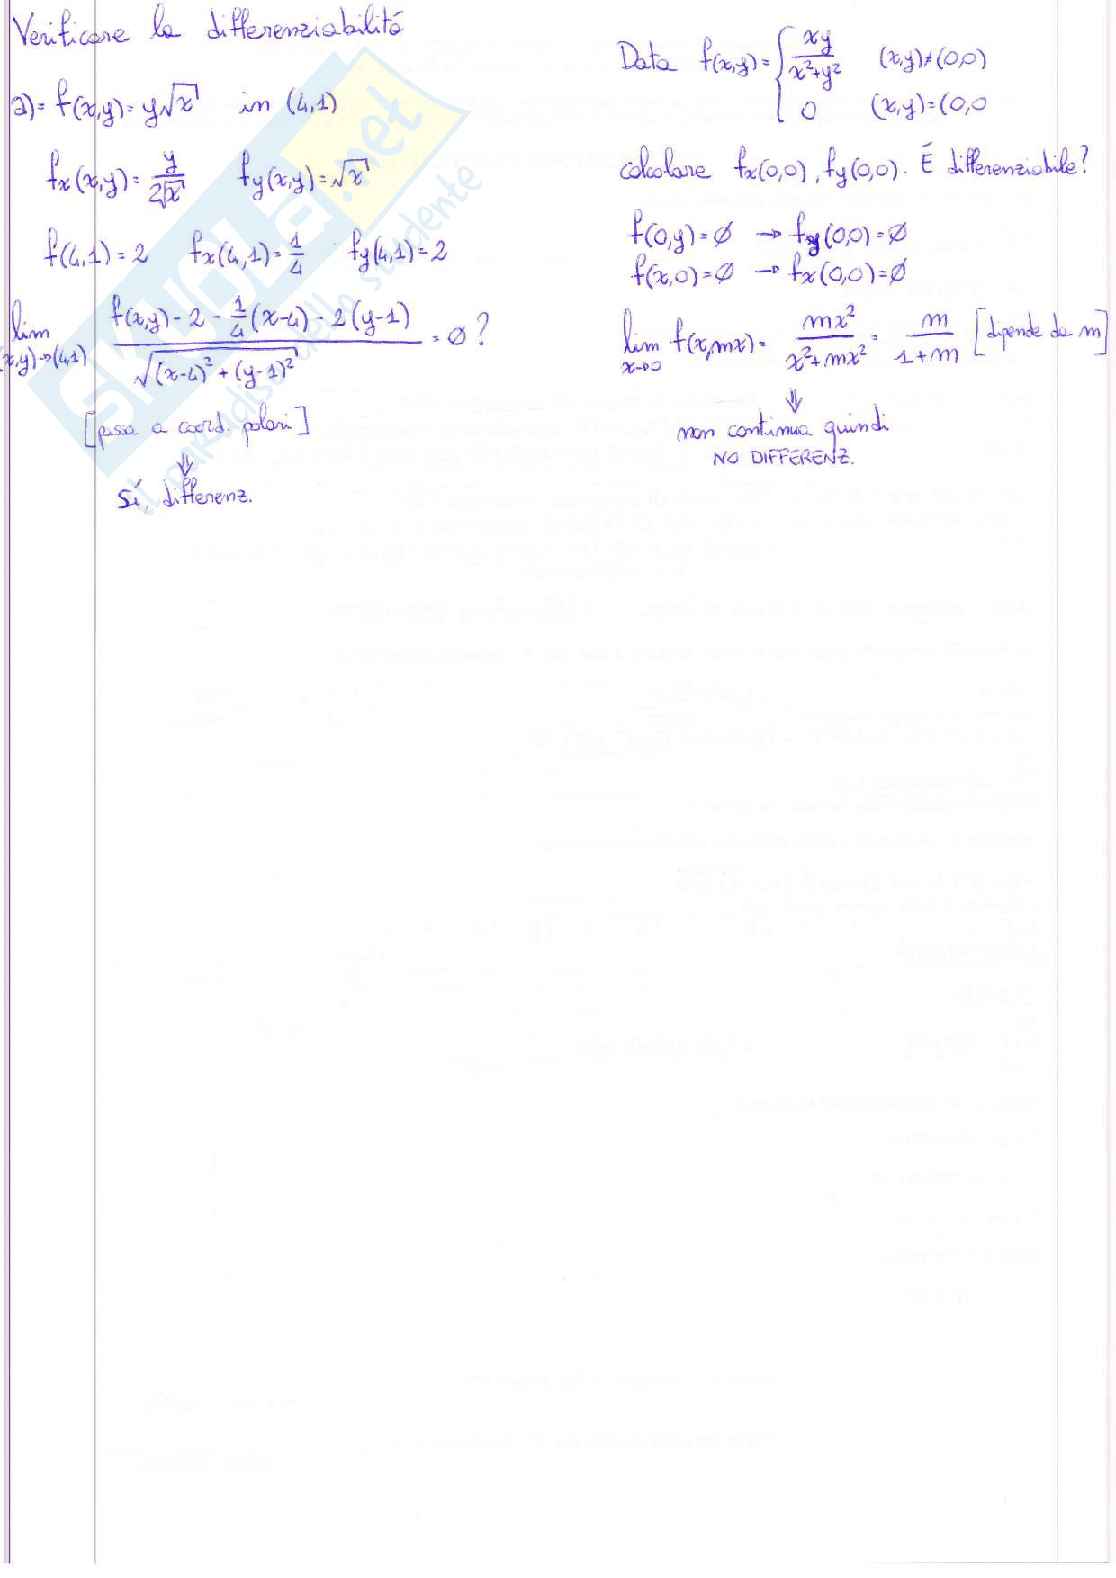 Verificare la differenziabilità
a)= f(x,y)= y√x in (4,1)
fx(x,y)= y/2√x fy(x,y)=√x
f(4,1)=2 fx(4,1)=1/4 fy(4,1)=2
lim (x,y)→(4,1) f(x,y)-2-1/4(x-4)-2(y-1) / √(x-4)²+(y-1)² =∅?
[passa a coord. polari]
⇓
Sí, differenz.
Data f(x,y)= { xy/x²+y² (x,y)≠(0,0)
0 (x,y)=(0,0
calcolare fx(0,0), fy(0,0). É differenziabile?
f(0,y)=∅ → fy(0,0)=∅
f(x,0)=∅ → fx(0,0)=∅
lim x→0 f(x,mx)= mx²/x²+mx² = m/1+m [dipende da m]
⇓
non continua quindi
NO DIFFERENZ.
SKUOLA.net
il paradiso dello studente